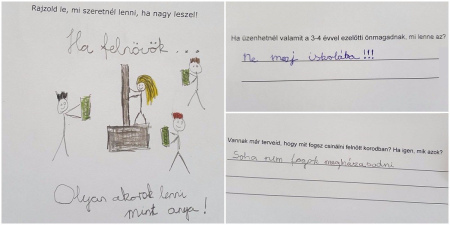 Rajzold le, mi szeretnél lenni, ha nagy leszel!
Ha felnövök...
Olyan akarok lenni
mint anya!
Ha üzenhetnél valamit a 3-4 évvel ezelőtti önmagadnak, mi lenne az?
Ne menj iskolába!!!
Vannak már terveid, hogy mit fogsz csinálni felnőtt korodban? Ha igen, mik azok?
Soha nem fogok megházasodni